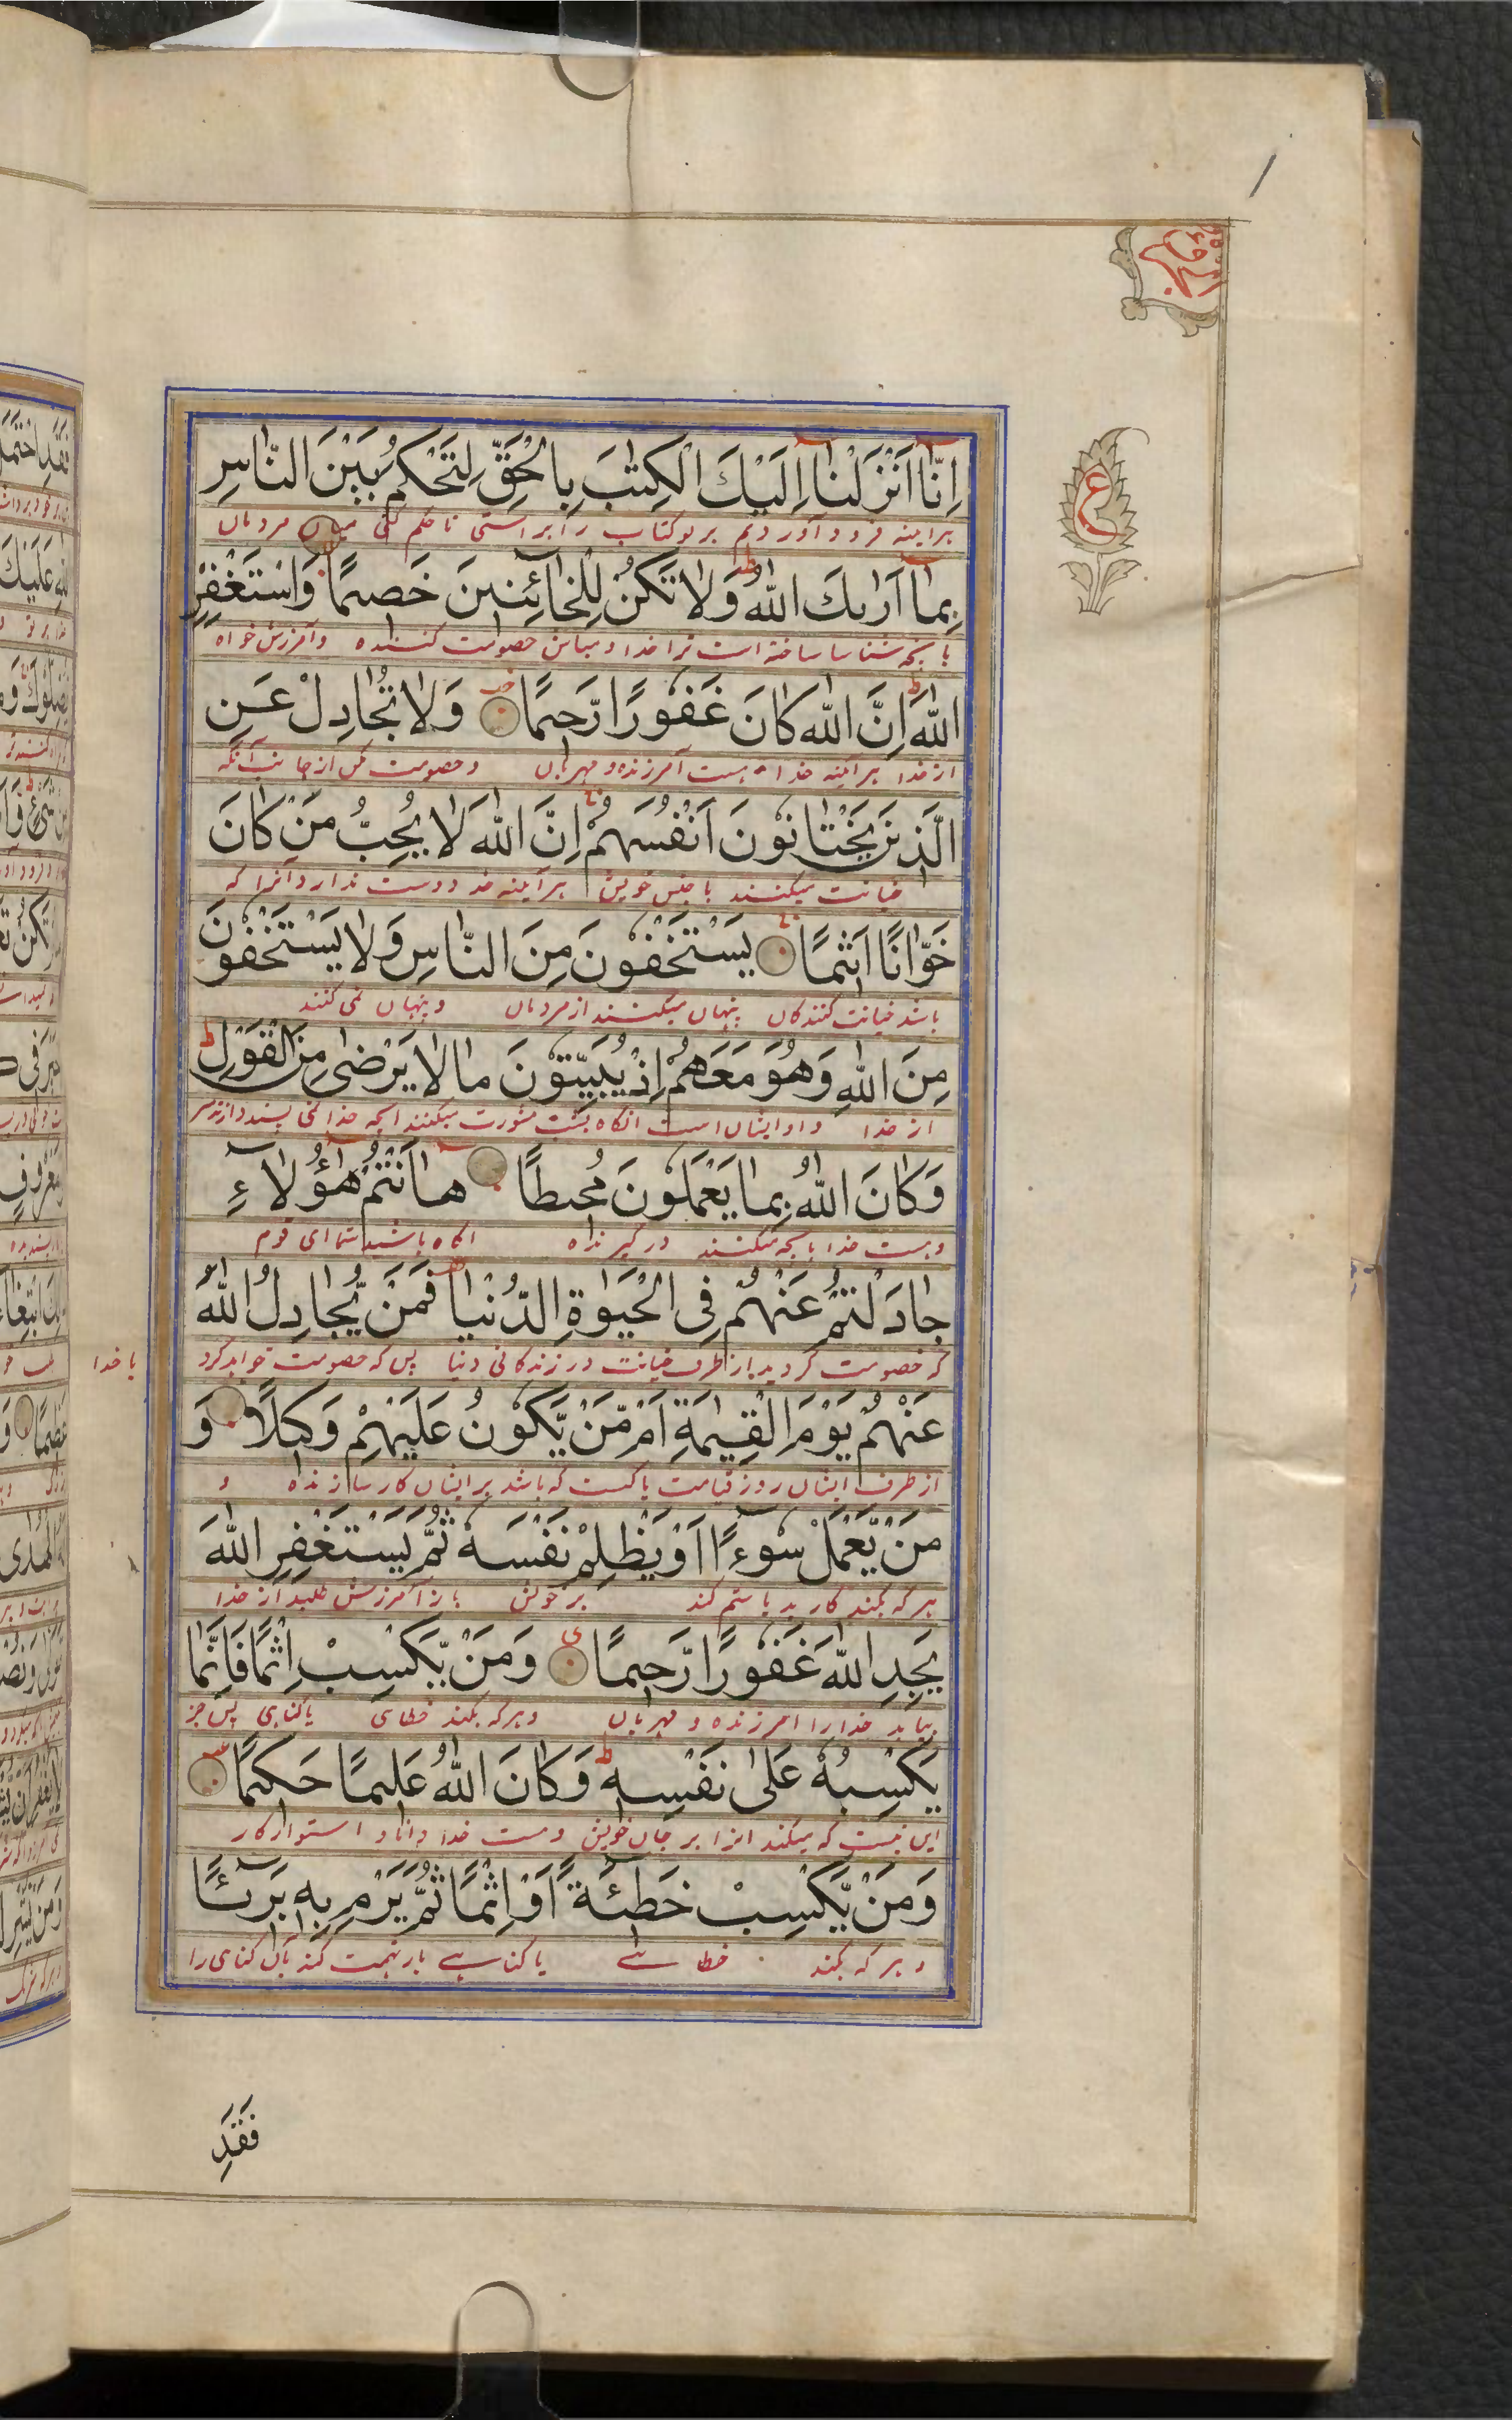 اِنَّا اَنْزَلْنَا اِلَيْكَ الْكِتٰبَ بِالْحَقِّ لِتَحْكُمَ بَيْنَ النَّاسِ
برآینه فرود آوردیم بر تو کتاب را براستی تا حکم کنی میان مردمان
بِمَا اَرٰىكَ اللّٰهُ وَلَا تَكُنْ لِلْخَائِنِينَ خَصِيمًا وَاسْتَغْفِرِ
بآنچه شناسا ساخته است ترا خدا و مباش خصومت کننده وآمرزش خواه
اللّٰهَ اِنَّ اللّٰهَ كَانَ غَفُورًا رَّحِيمًا وَلَا تُجَادِلْ عَنِ
از خدا برآئینه خدا هست آمرزنده و مهربان وخصومت مکن از جانب آنانکه
الَّذِينَ يَخْتَانُونَ اَنْفُسَهُمْ اِنَّ اللّٰهَ لَا يُحِبُّ مَنْ كَانَ
خیانت میکنند با جنس خویش هرآینه خدا دوست ندارد آنرا که
خَوَّانًا اَثِيمًا يَسْتَخْفُونَ مِنَ النَّاسِ وَلَا يَسْتَخْفُونَ
باشد خیانت کنندکان پنهان میکنند از مردمان وپنهان نمی کنند
مِنَ اللّٰهِ وَهُوَ مَعَهُمْ اِذْ يُبَيِّتُونَ مَا لَا يَرْضٰى مِنَ الْقَوْلِ
از خدا و او با ایشان است آنکاه بشب مشورت میکنند آنچه خدا نمی پسندد از
وَكَانَ اللّٰهُ بِمَا يَعْمَلُونَ مُحِيطًا هَا اَنْتُمْ هٰؤُلَاءِ
وهست خدا بآنچه میکنند در گیرنده آکاه باشید شما ای قوم
جَادَلْتُمْ عَنْهُمْ فِى الْحَيٰوةِ الدُّنْيَا فَمَنْ يُّجَادِلُ اللّٰهَ
که خصومت کردید از طرف خیانت در زندکانی دنیا پس که خصومت خواهد کرد با خدا
عَنْهُمْ يَوْمَ الْقِيٰمَةِ اَمْ مَّنْ يَّكُونُ عَلَيْهِمْ وَكِيلًا وَ
از طرف ایشان روز قیامت یا کیست که باشد بر ایشان کار سازنده و
مَنْ يَّعْمَلْ سُوءًا اَوْ يَظْلِمْ نَفْسَهٗ ثُمَّ يَسْتَغْفِرِ اللّٰهَ
هر که بکند کار بد یا ستم کند بر خویش باز آمرزش طلبد از خدا
يَجِدِ اللّٰهَ غَفُورًا رَّحِيمًا وَمَنْ يَّكْسِبْ اِثْمًا فَاِنَّمَا
بیابد خدا را آمرزنده و مهربان وهرکه بکند خطای یا کناهی پس جز
يَكْسِبُهٗ عَلٰى نَفْسِهٖ وَكَانَ اللّٰهُ عَلِيمًا حَكِيمًا
این نیست که میکند آنرا بر جان خویش وهست خدا دانا و استوار کار
وَمَنْ يَّكْسِبْ خَطِئَةً اَوْ اِثْمًا ثُمَّ يَرْمِ بِهٖ بَرِئًا
وهر که بکند خطائے یا کناہے باز تهمت کند بآن کناهی را
فَقَدِ
ع